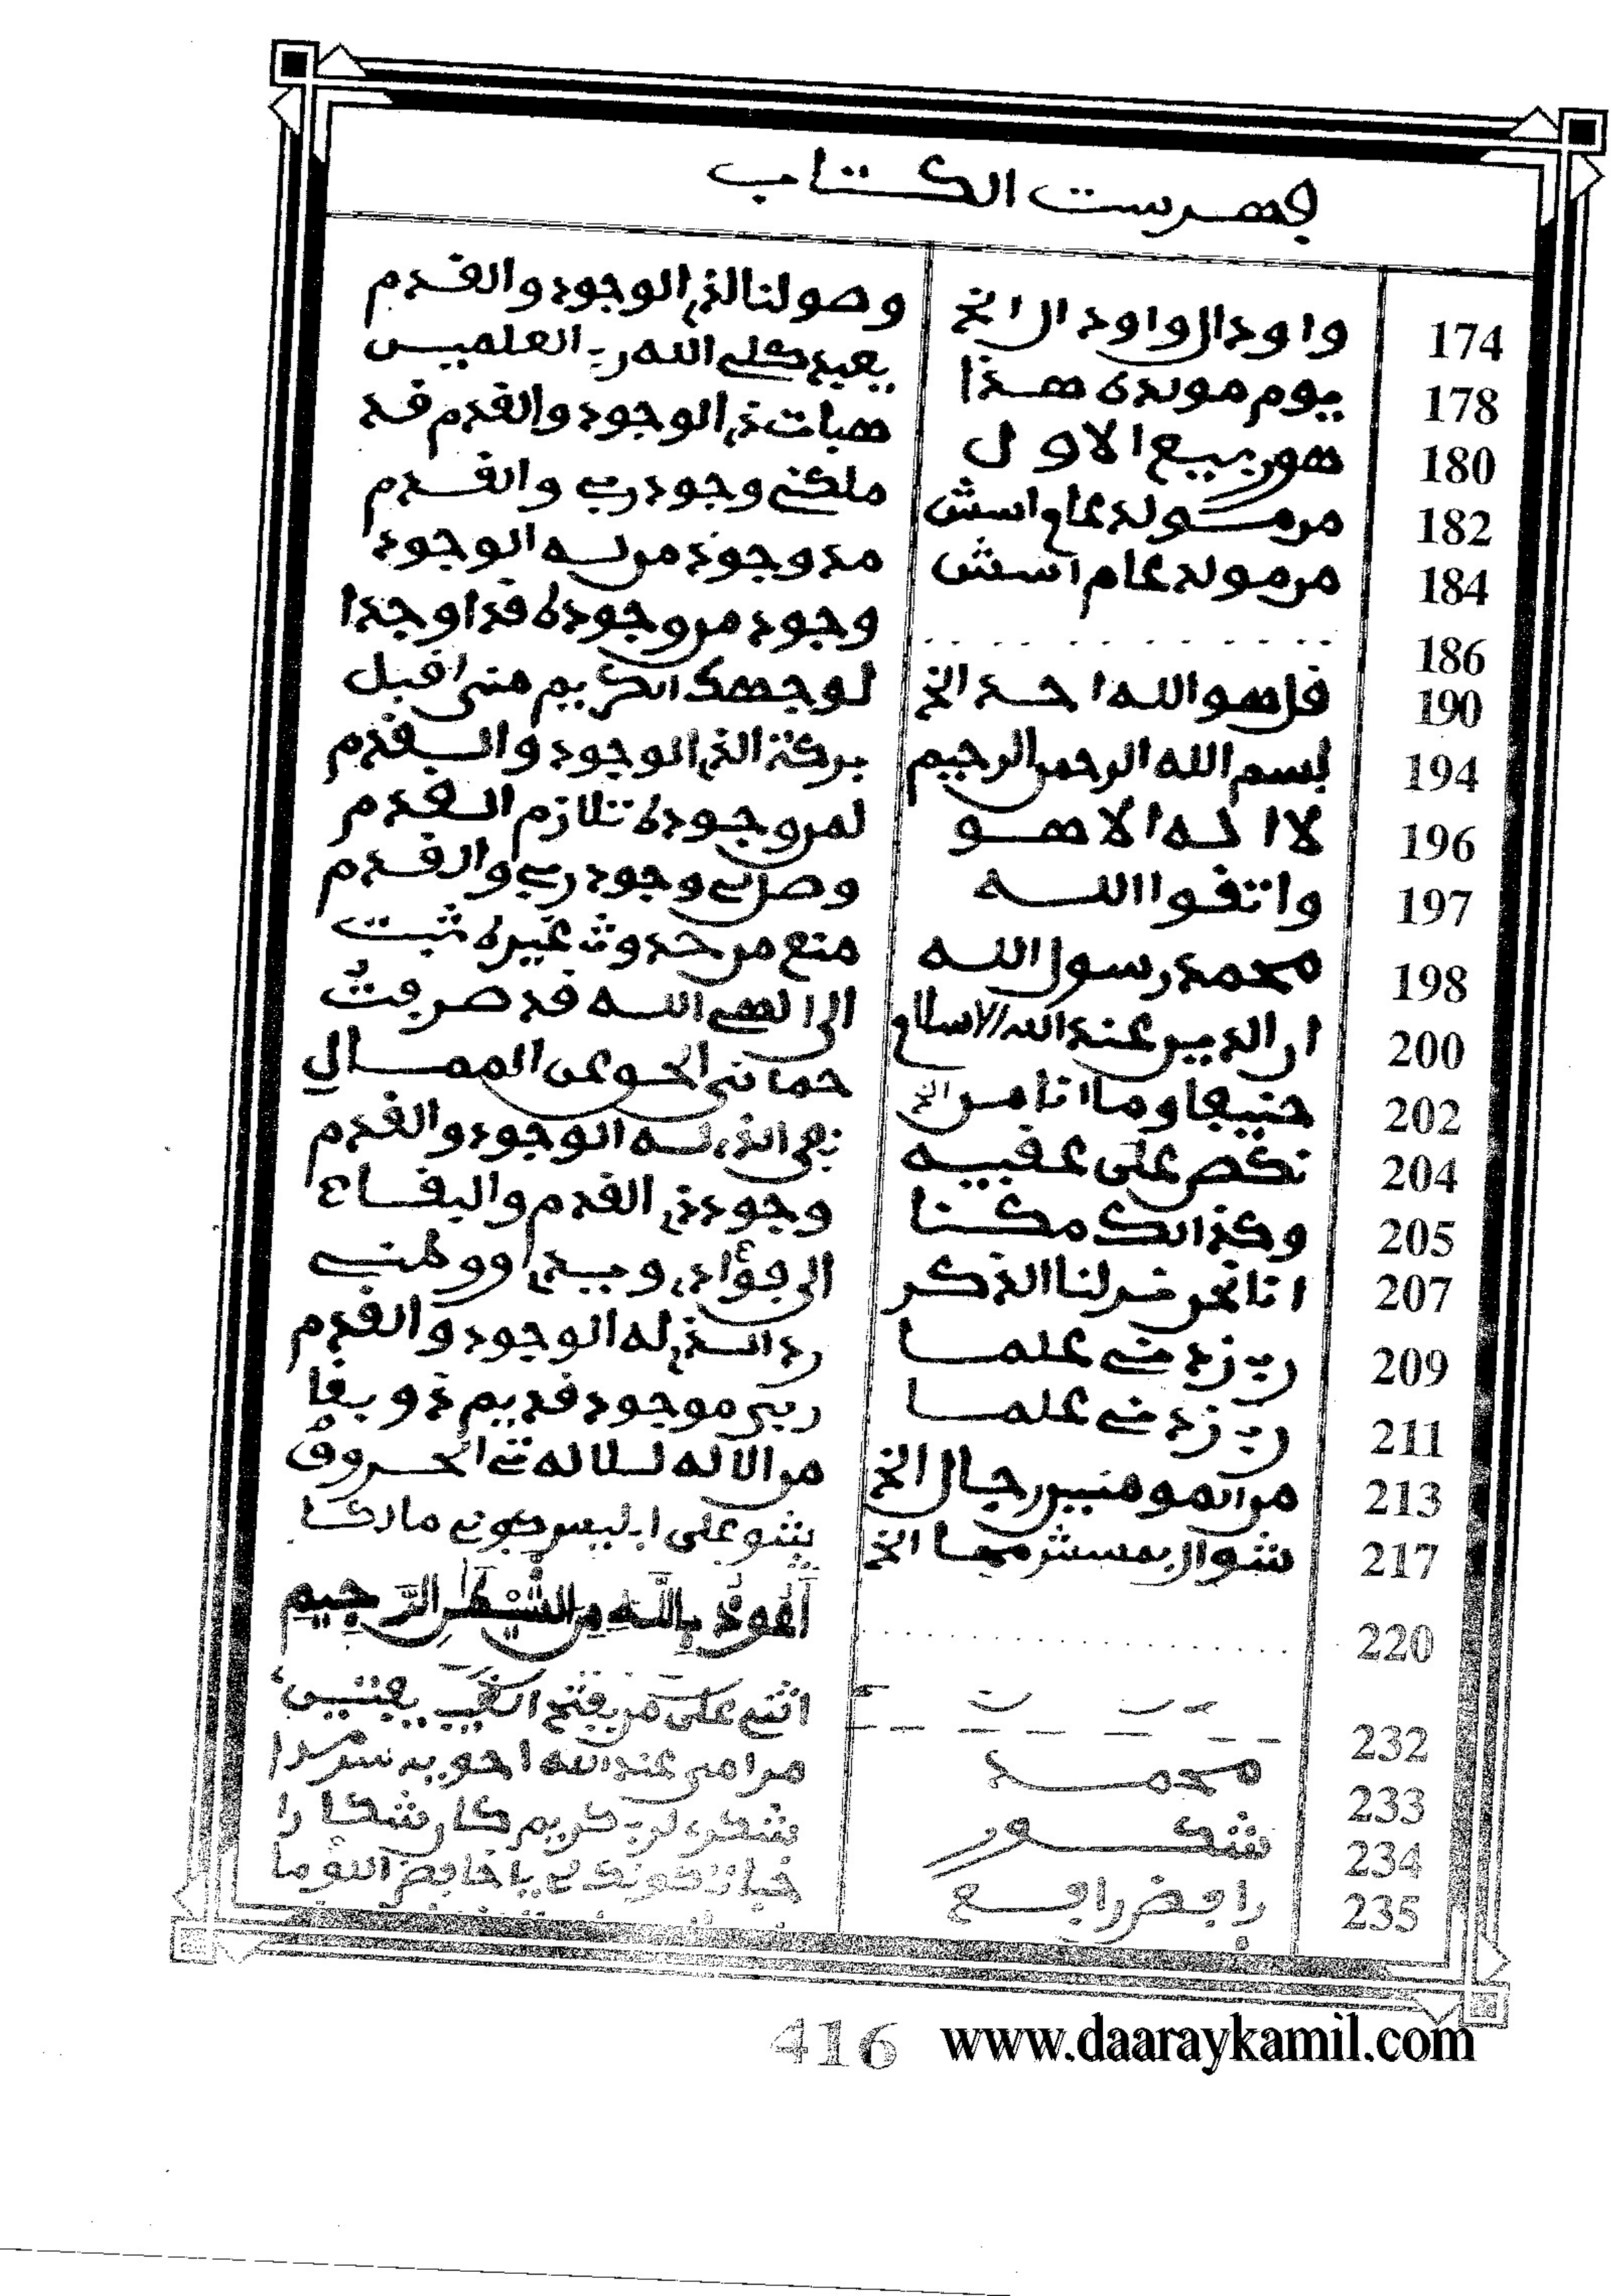 فهرست الكتاب
174 واو دال واو دال الخ وصولنا الذى الوجود والقدم
178 يوم مولده هذا يعيد كلى الله رب العلمين
180 هو ربيع الاول هبات ذى الوجود والقدم قد
182 من مولد عام اسش ملكنى وجود ربى والقدم
184 من مولد عام اسش مد وجود من له الوجود
186 . . . . . . . . . . . . وجود من وجوده قد اوجدا
190 قل هو الله احد الخ لوجهك الكريم منى اقبل
194 بسم الله الرحمن الرحيم بركة الذى الوجود والقدم
196 لا اله الا هو لمن وجوده تلازم القدم
197 واتقوا الله وصل لى وجود ربى والقدم
198 محمد رسول الله منع من حدوث غيره ثبت
200 ان الدين عند الله الاسلام الى الهى الله قد صرفت
202 حنيفا وما انا من الخ حمانى الحق عن الممال
204 نكص على عقبيه نفى الذى له الوجود والقدم
205 وكذالك مكنا وجود ذى القدم والبقاء
207 انا نحن نزلنا الذكر الى فؤادى وبيدى ووطنى
209 رب زدنى علما رد الذى له الوجود والقدم
211 رب زدنى علما ربى موجود قديم ذو بقا
213 من المومنين رجال الخ من الاله لسلاله فى الحروف
217 الخ يشو على ابليس
220 . . . . . . . . . . . . أعوذ بالله من الشيطن الرجيم
232 اثنى على من يفتح الغيب
233 محمد من امن عند الله
234 شكور شكرى لرب كريم كان شكارا
235 رافع يا خافض
416 www.daaraykamil.com